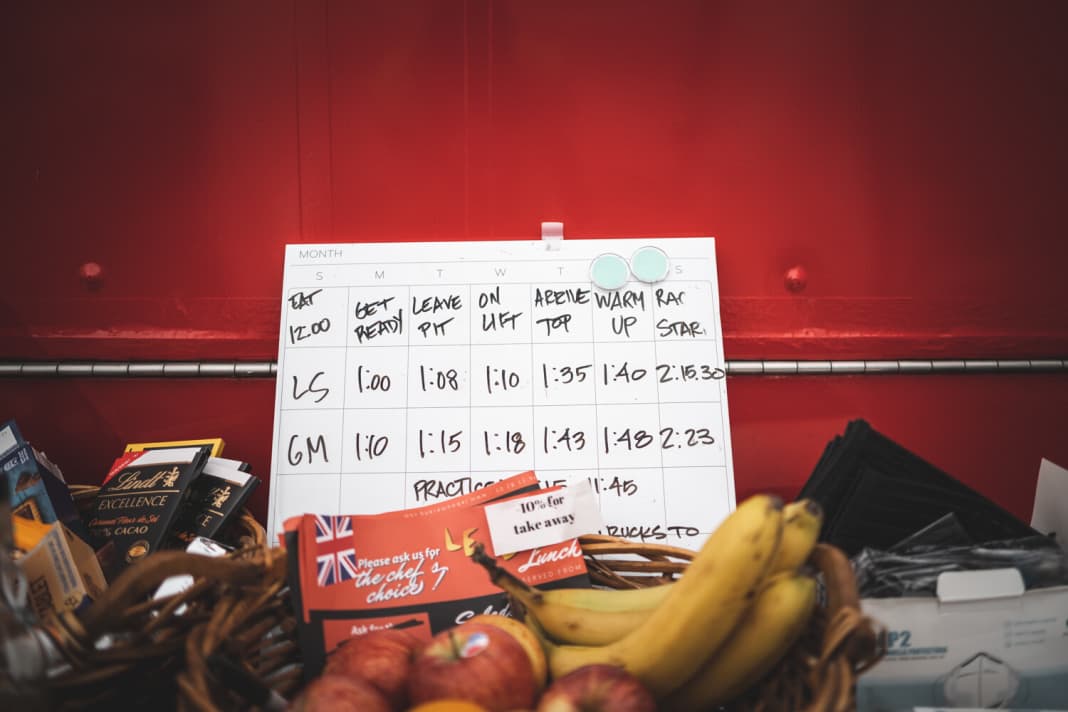 MONTH
S M T W T S
EAT 12:00 GET READY LEAVE PIT ON LIFT ARRIVE TOP WARM UP RAC STAR
LS 1:00 1:08 1:10 1:35 1:40 2:15.30
GM 1:10 1:15 1:18 1:43 1:48 2:23
PRACTIC 11:45
RUCKS TO
Lindt
EXCELLENCE
Caramel Fleur de Sel
% CACAO
10% for
take away
Please ask us for
the chef's
choice?
Lunch
SERVED FROM
Ask for
P2